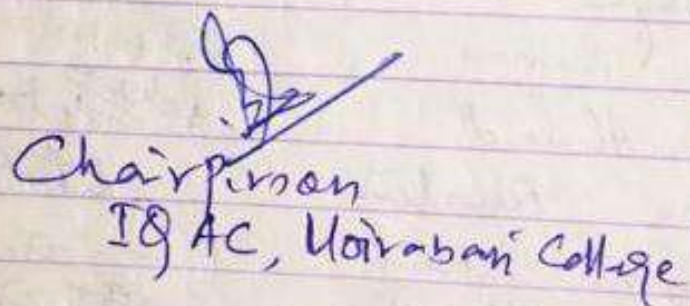 Chairperson
IQAC, Moirabari College